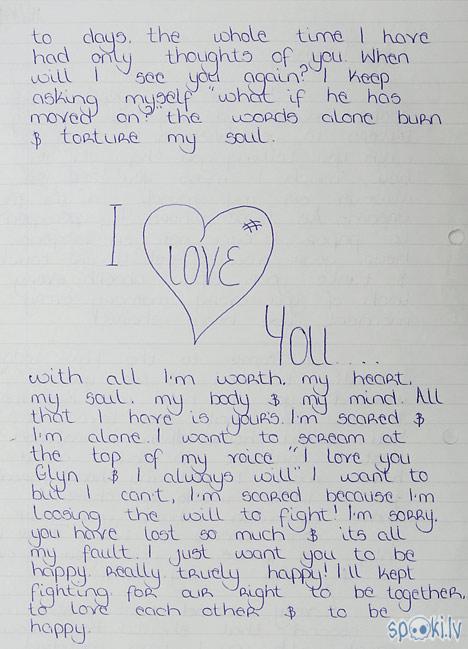 to days. the whole time I have
had only thoughts of you. When
will I see you again? I keep
asking myself "what if he has
moved on?" the words alone burn
& torture my soul.
I LOVE #
You....
with all I'm worth. my heart.
my soul. my body & my mind. All
that I have is yours. I'm scared &
I'm alone. I want to scream at
the top of my voice "I love you
Glyn & I always will" I want to
but I can't, I'm scared because I'm
loosing the will to fight! I'm sorry.
you have lost so much & its all
my fault. I just want you to be
happy. Really truely happy! I'll kept
fighting for our right to be together,
to love each other & to be
happy.
spoki.lv